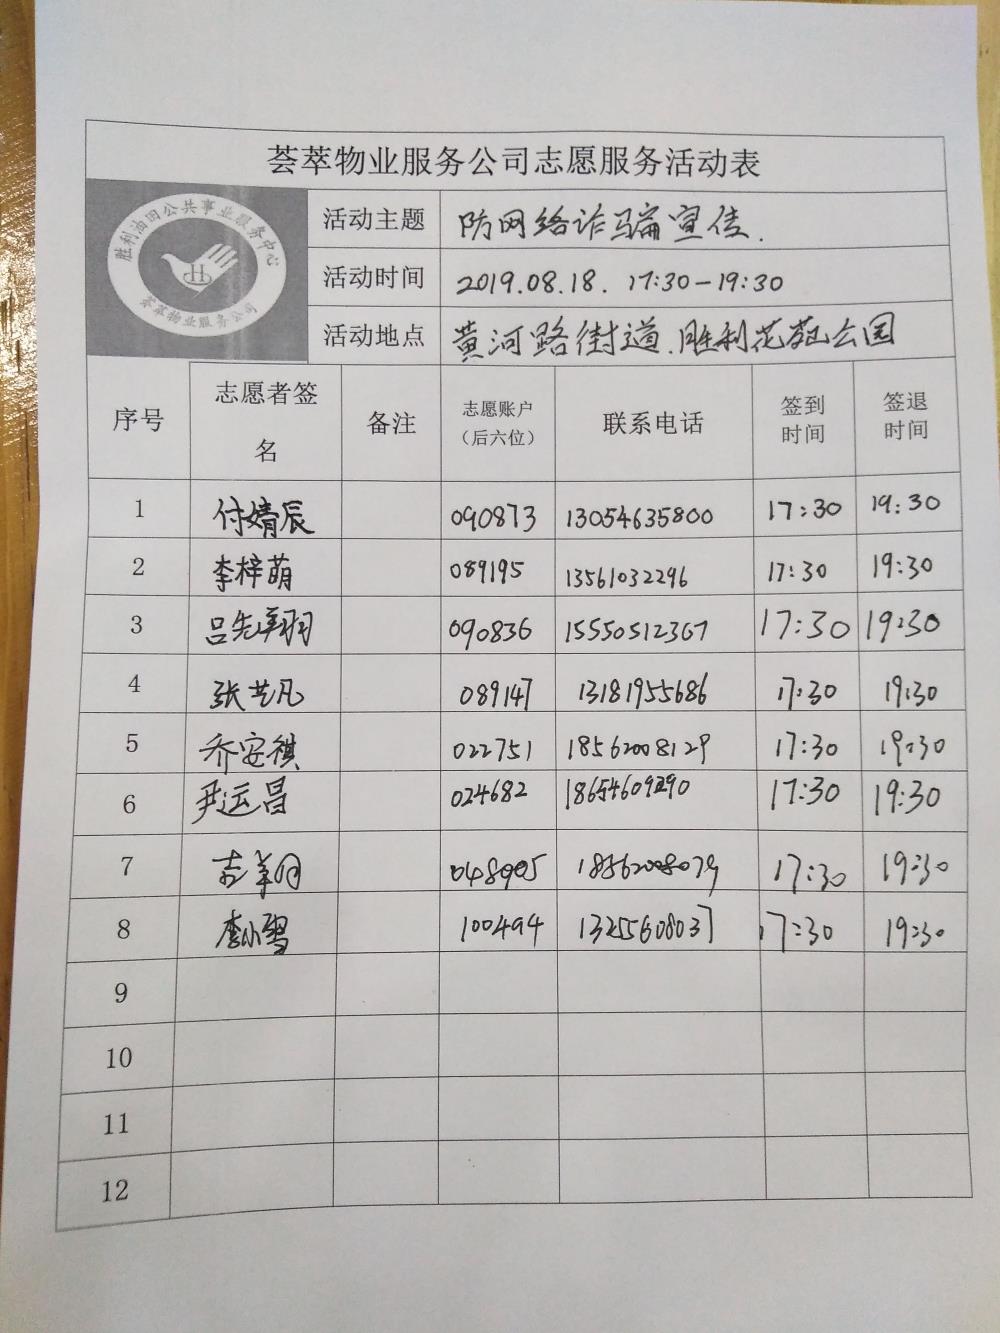 荟萃物业服务公司志愿服务活动表
胜利油田公共事业服务中心
荟萃物业服务公司
活动主题 防网络诈骗宣传.
活动时间 2019.08.18. 17:30-19:30
活动地点 黄河路街道.胜利花苑公园
序号 志愿者签名 备注 志愿账户（后六位） 联系电话 签到时间 签退时间
1 付婧辰 090873 13054635800 17:30 19:30
2 李梓萌 089195 13561032296 17:30 19:30
3 吕先翔 090836 15550512367 17:30 19:30
4 张艺凡 089147 13181955686 17:30 19:30
5 乔安祺 022751 18562008129 17:30 19:30
6 尹运昌 024682 17:30 19:30
7 17:30 19:30
8 李小雪 100494 13255608037 17:30 19:30
9
10
11
12